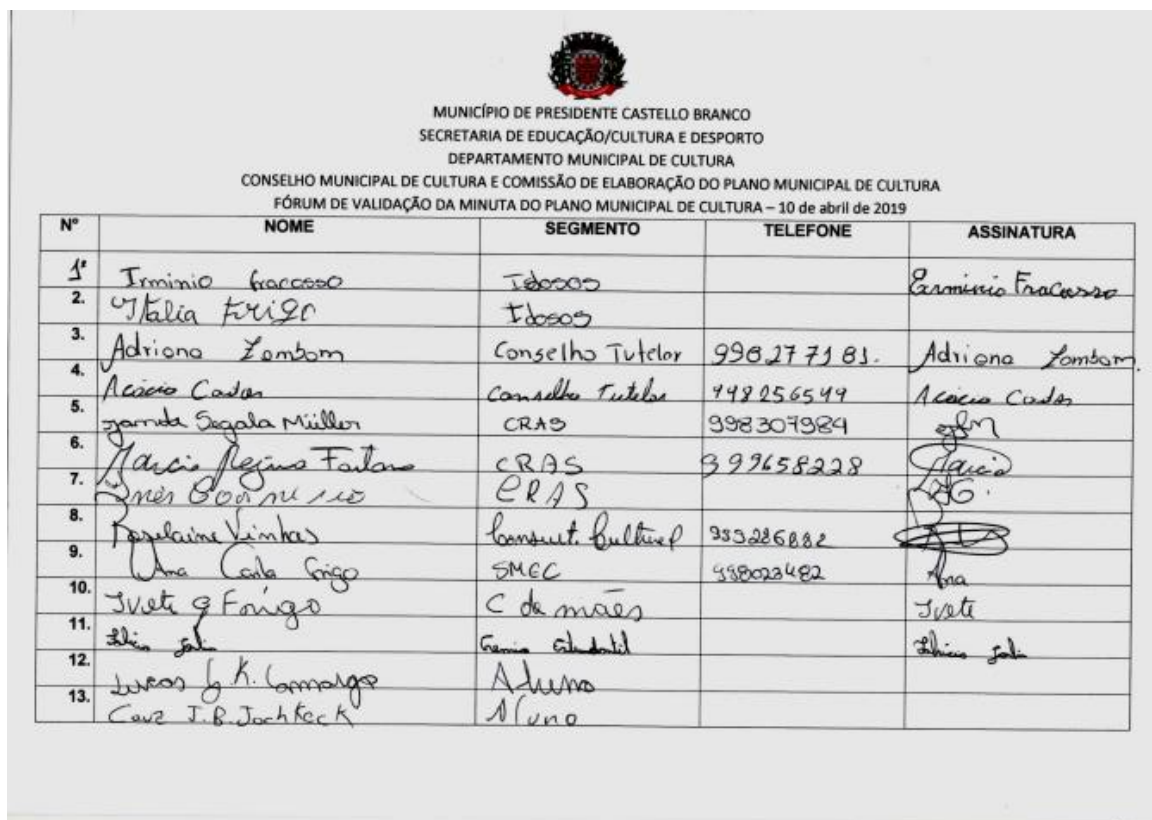 MUNICÍPIO DE PRESIDENTE CASTELLO BRANCO
SECRETARIA DE EDUCAÇÃO/CULTURA E DESPORTO
DEPARTAMENTO MUNICIPAL DE CULTURA
CONSELHO MUNICIPAL DE CULTURA E COMISSÃO DE ELABORAÇÃO DO PLANO MUNICIPAL DE CULTURA
FÓRUM DE VALIDAÇÃO DA MINUTA DO PLANO MUNICIPAL DE CULTURA – 10 de abril de 2019
Nº NOME SEGMENTO TELEFONE ASSINATURA
1º Irminio fracosso Idosos Erminio Fracasso
2. Italia Frigo Idosos
3. Adriana Zombom Conselho Tutelar 998277181. Adriana Zombom.
4. Acácio Conselho Tutelar Acácio
5. Segala Müller CRAS 998307984
6. Marcia CRAS 999658228 Marcia
7. Inês CRAS
8. Roselaine Vinhas Consult. Cultural
9. Ana Carla Frigo SMEC 998023482 Ana
10. Ivete Frigo C de mães Ivete
11. Gremio Estudantil
12. Lucas K. Camargo Aluno
13. J.B. Aluno